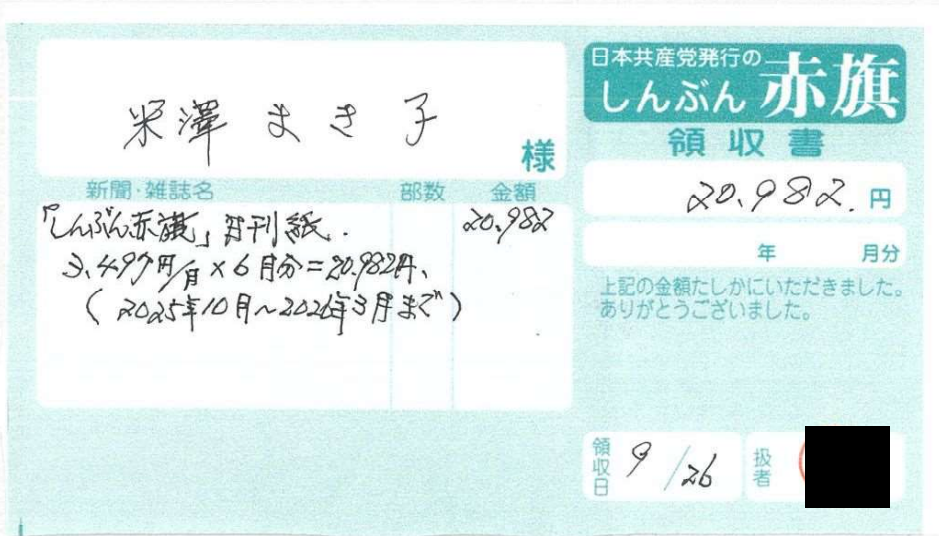 米澤 まき子
様
新聞・雑誌名 部数 金額
「しんぶん赤旗」日刊紙. 20,982
3,497円/月×6月分=20,982円、
(2025年10月~2026年3月まで)
日本共産党発行の
しんぶん 赤旗
領収書
20,982. 円
年 月分
上記の金額たしかにいただきました。
ありがとうございました。
領収日 9/26
扱者